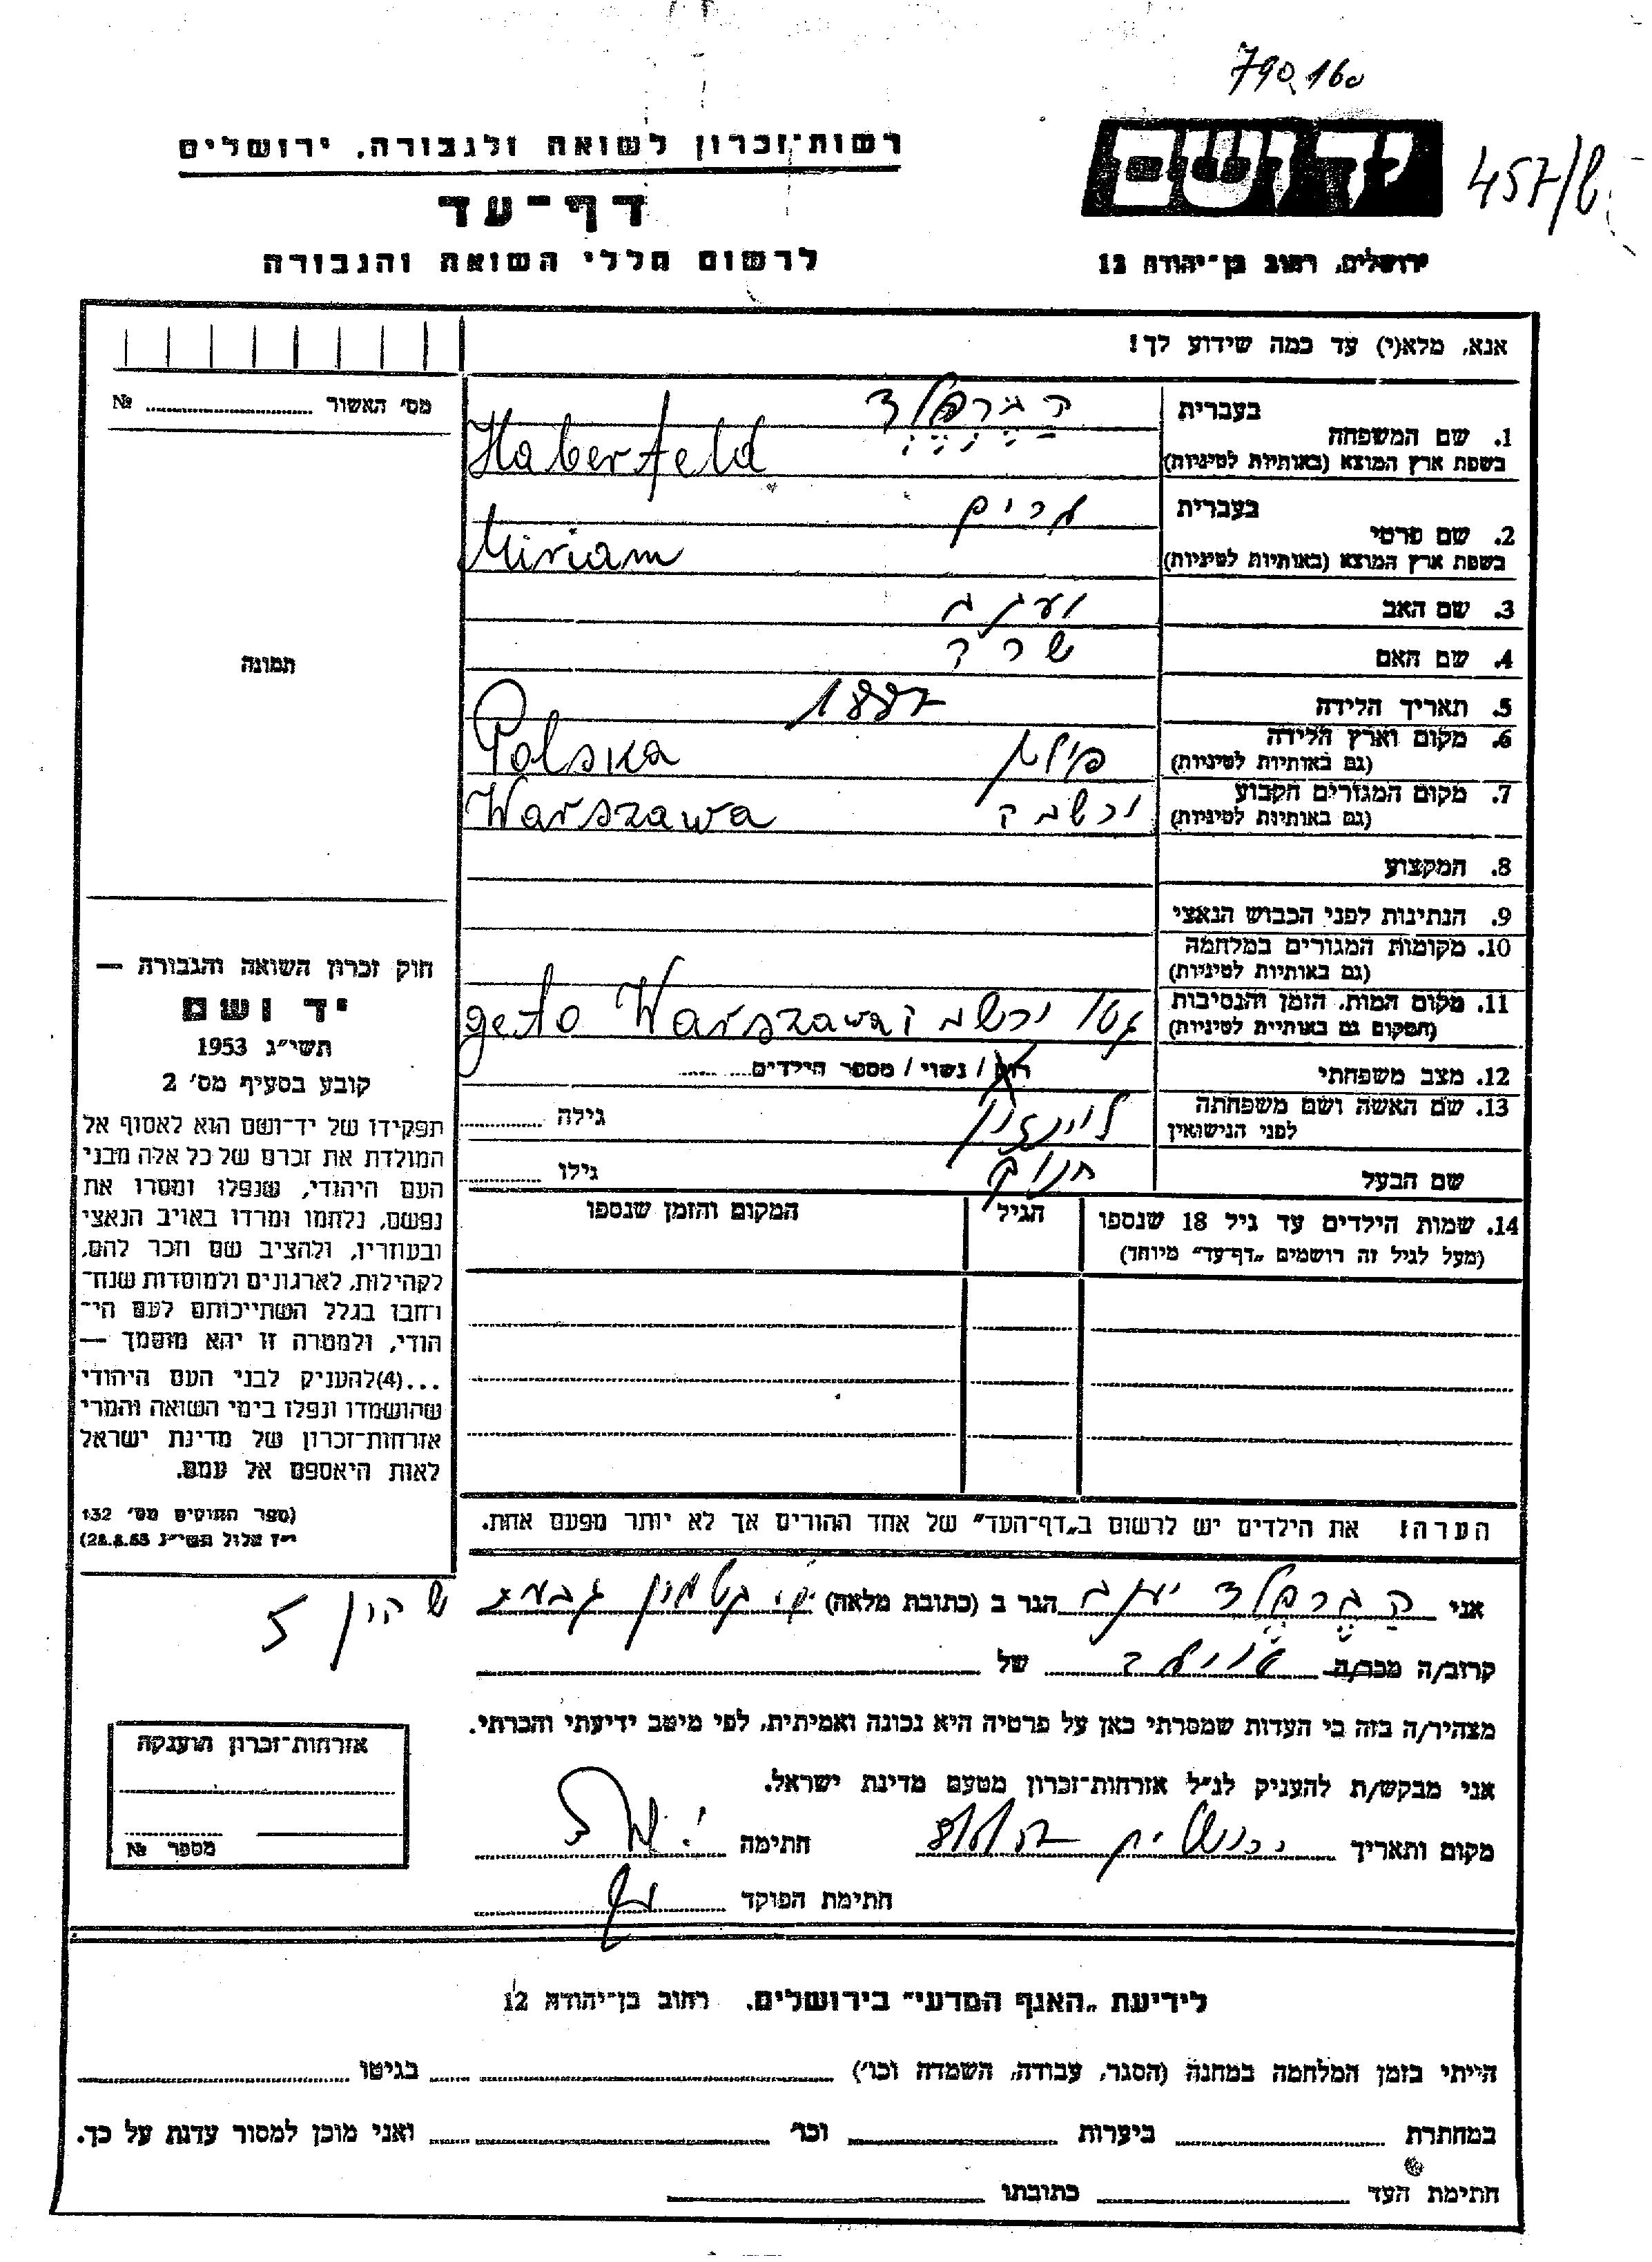 790160
רשות־זכרון לשואה ולגבורה, ירושלים
יד ושם
457/
דף־עד
לרשום חללי השואה והגבורה
ירושלים, רחוב בן־יהודה 12
אנא, מלא(י) עד כמה שידוע לך!
מס׳ האשור № 
בעברית הברפלד
1. שם המשפחה
בשפת ארץ המוצא (באותיות לטיניות) Haberfeld
בעברית מרים
2. שם פרטי
בשפת ארץ המוצא (באותיות לטיניות) Miriam
3. שם האב יעקב
4. שם האם שרה
תמונה
5. תאריך הלידה 1887
6. מקום וארץ הלידה
(גם באותיות לטיניות) פולין Polska
7. מקום המגורים הקבוע
(גם באותיות לטיניות) ורשבה Warszawa
8. המקצוע
9. הנתינות לפני הכבוש הנאצי
10. מקומות המגורים במלחמה
(גם באותיות לטיניות)
11. מקום המות, הזמן והנסיבות
(המקום גם באותיות לטיניות) גטו ורשבה geto Warszawa
12. מצב משפחתי רוק / נשוי / מספר הילדים
13. שם האשה ושם משפחתה
לפני הנישואין גילה
שם הבעל חנוך גילו
14. שמות הילדים עד גיל 18 שנספו הגיל המקום והזמן שנספו
(מעל לגיל זה רושמים „דף־עד” מיוחד)
חוק זכרון השואה והגבורה —
יד ושם
תשי״ג 1953
קובע בסעיף מס׳ 2
תפקידו של יד־ושם הוא לאסוף אל
המולדת את זכרם של כל אלה מבני
העם היהודי, שנפלו ומסרו את
נפשם, נלחמו ומרדו באויב הנאצי
ובעוזריו, ולהציב שם וזכר להם,
לקהילות, לארגונים ולמוסדות שנח־
רבו בגלל השתייכותם לעם הי־
הודי, ולמטרה זו יהא מוסמך —
...(4)להעניק לבני העם היהודי
שהושמדו ונפלו בימי השואה והמרי
אזרחות־זכרון של מדינת ישראל
לאות היאספם אל עמם.
(ספר החוקים מס׳ 132
י״ז אלול תשי״ג 28.8.53)
הערה! את הילדים יש לרשום ב„דף־העד” של אחד ההורים אך לא יותר מפעם אחת.
אני הברפלד יעקב הגר ב (כתובת מלאה)
קרוב/ה מכר/ה של
מצהיר/ה בזה כי העדות שמסרתי כאן על פרטיה היא נכונה ואמיתית, לפי מיטב ידיעתי והכרתי.
אני מבקש/ת להעניק לנ״ל אזרחות־זכרון מטעם מדינת ישראל.
מקום ותאריך ירושלים חתימה
חתימת הפוקד
אזרחות־זכרון הוענקה
מספר №
לידיעת „האגף המדעי” בירושלים, רחוב בן־יהודה 12
הייתי בזמן המלחמה במחנה (הסגר, עבודה, השמדה וכו׳) בגיטו
במחתרת ביערות וכו׳ ואני מוכן למסור עדות על כך.
חתימת העד כתובתו